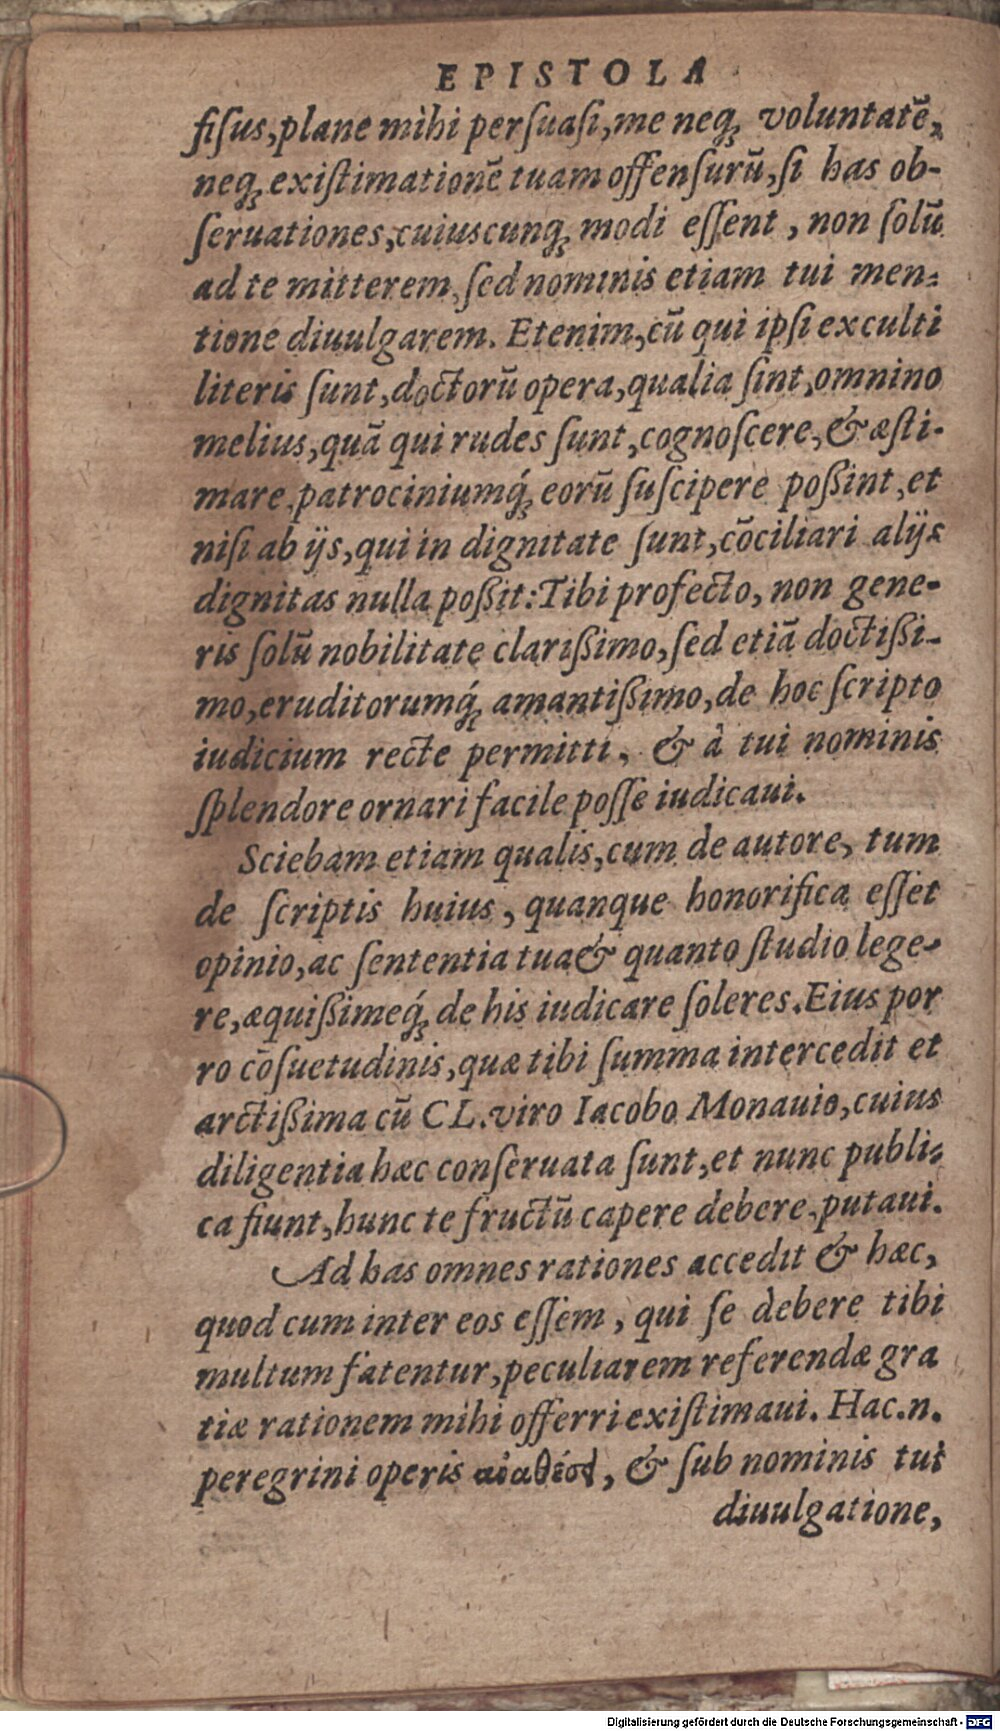 EPISTOLA
fiſus, plane mihi perſuaſi, me neq; voluntatē,
neq; exiſtimationē tuam offenſurū, ſi has ob-
ſeruationes, cuiuscunq; modi eſſent, non ſolū
ad te mitterem, ſed nominis etiam tui men-
tione diuulgarem. Etenim, cū qui ipſi exculti
literis ſunt, doctorū opera, qualia ſint, omnino
melius, quā qui rudes ſunt, cognoſcere, & æſti-
mare, patrociniumq́; eorū ſuſcipere poßint, et
niſi ab ijs, qui in dignitate ſunt, cōciliari alijs
dignitas nulla poßit: Tibi profecto, non gene-
ris ſolū nobilitate clarißimo, ſed etiā doctißi-
mo, eruditorumq́; amantißimo, de hoc ſcripto
iudicium recte permitti, & à tui nominis
ſplendore ornari facile poſſe iudicaui.
Sciebam etiam qualis, cum de autore, tum
de ſcriptis huius, quanque honorifica eſſet
opinio, ac ſententia tua & quanto ſtudio lege-
re, æquißimeq́; de his iudicare ſoleres. Eius por
ro cōſuetudinis, quæ tibi ſumma intercedit et
arctißima cū CL. viro Iacobo Monauio, cuius
diligentia hæc conſeruata ſunt, et nunc publi-
ca fiunt, hunc te fructū capere debere, putaui.
Ad has omnes rationes accedit & hæc,
quod cum inter eos eſſem, qui ſe debere tibi
multum fatentur, peculiarem referendæ gra
tiæ rationem mihi offerri exiſtimaui. Hac.n.
peregrini operis , & ſub nominis tui
diuulgatione,
Digitalisierung gefördert durch die Deutsche Forschungsgemeinschaft - DFG